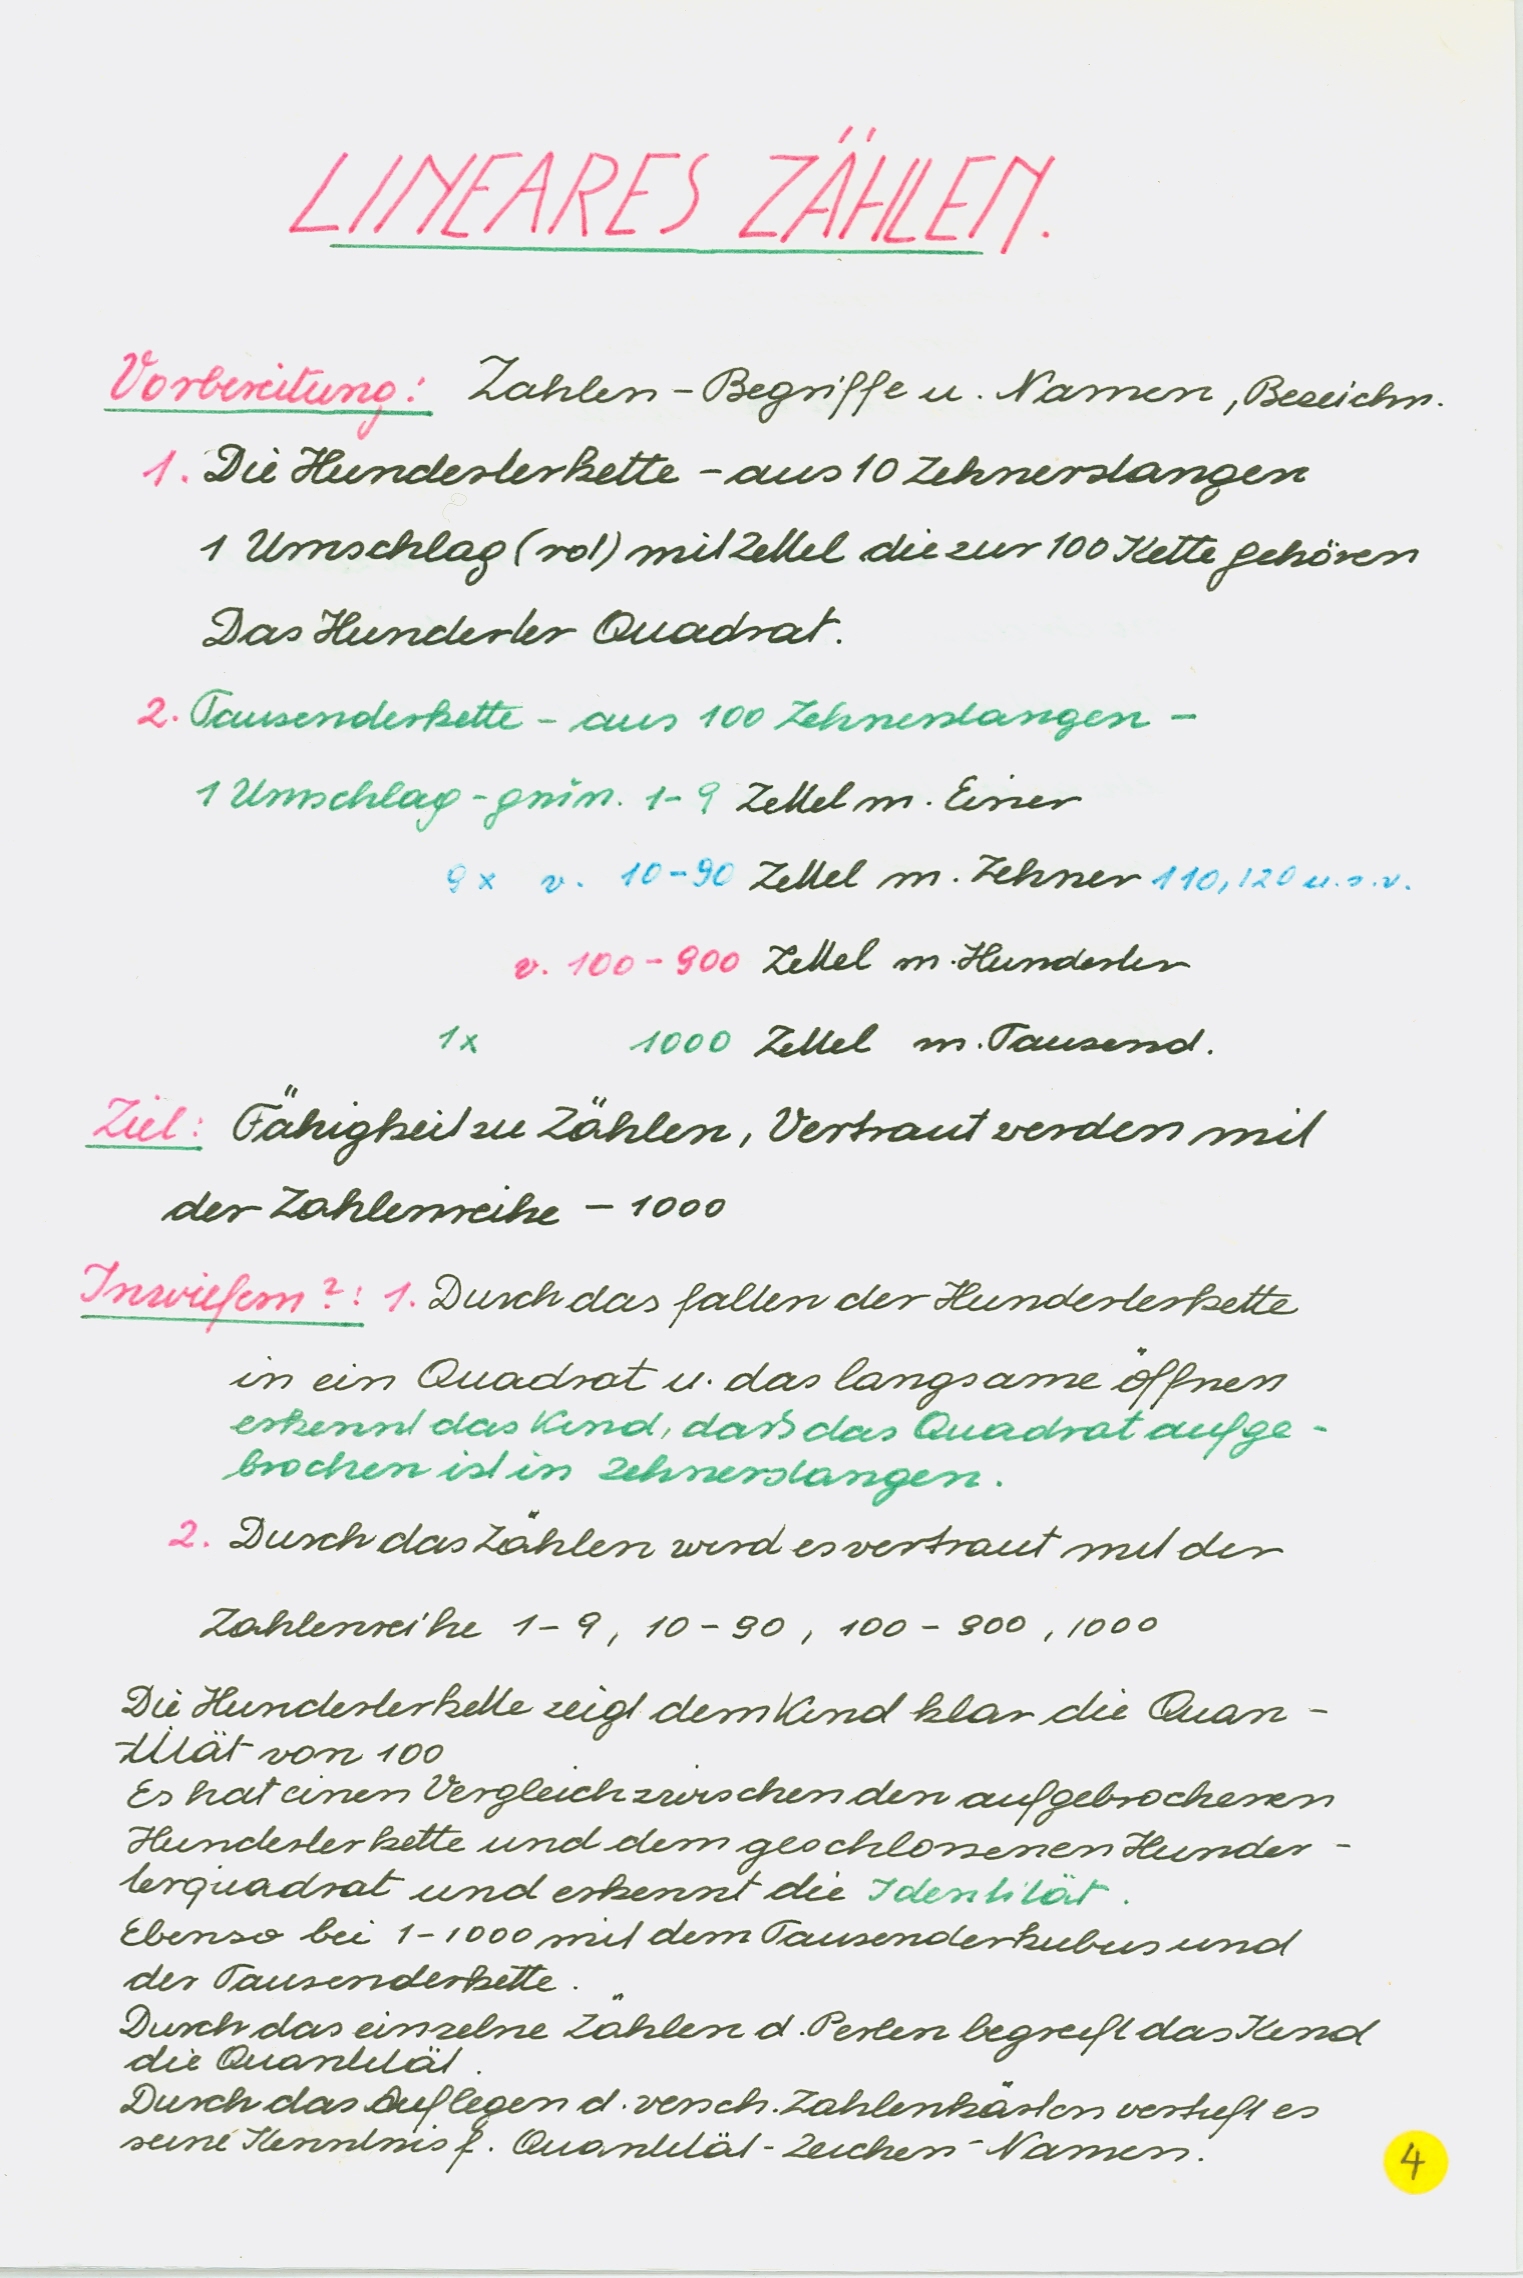 LINEARES ZÄHLEN.
Vorbereitung: Zahlen - Begriffe u. Namen, Bezeichn.
1. Die Hunderterkette - aus 10 Zehnerstangen
1 Umschlag (rot) mit Zettel die zur 100 Kette gehören
Das Hunderter Quadrat.
2. Tausenderkette - aus 100 Zehnerstangen -
1 Umschlag - grün. 1-9 Zettel m. Einer
9x v. 10-90 Zettel m. Zehner 110, 120 u.s.v.
v. 100-900 Zettel m. Hunderter
1x 1000 Zettel m. Tausend.
Ziel: Fähigkeit zu Zählen, Vertraut werden mit
der Zahlenreihe - 1000
Inwiefern?: 1. Durch das falten der Hunderterkette
in ein Quadrat u. das langsame öffnen
erkennt das Kind, daß das Quadrat aufge-
brochen ist in Zehnerstangen.
2. Durch das Zählen wird es vertraut mit der
Zahlenreihe 1-9, 10-90, 100-900, 1000
Die Hunderterkette zeigt dem Kind klar die Quan-
tität von 100
Es hat einen Vergleich zwischen den aufgebrochenen
Hunderterkette und dem geschlossenen Hunder-
terquadrat und erkennt die Identität.
Ebenso bei 1-1000 mit dem Tausenderkubus und
der Tausenderkette.
Durch das einzelne Zählen d. Perlen begreift das Kind
die Quantität.
Durch das Auflegen d. versch. Zahlenkärten vertieft es
seine Kenntnis f. Quantität - Zeichen - Namen.
4